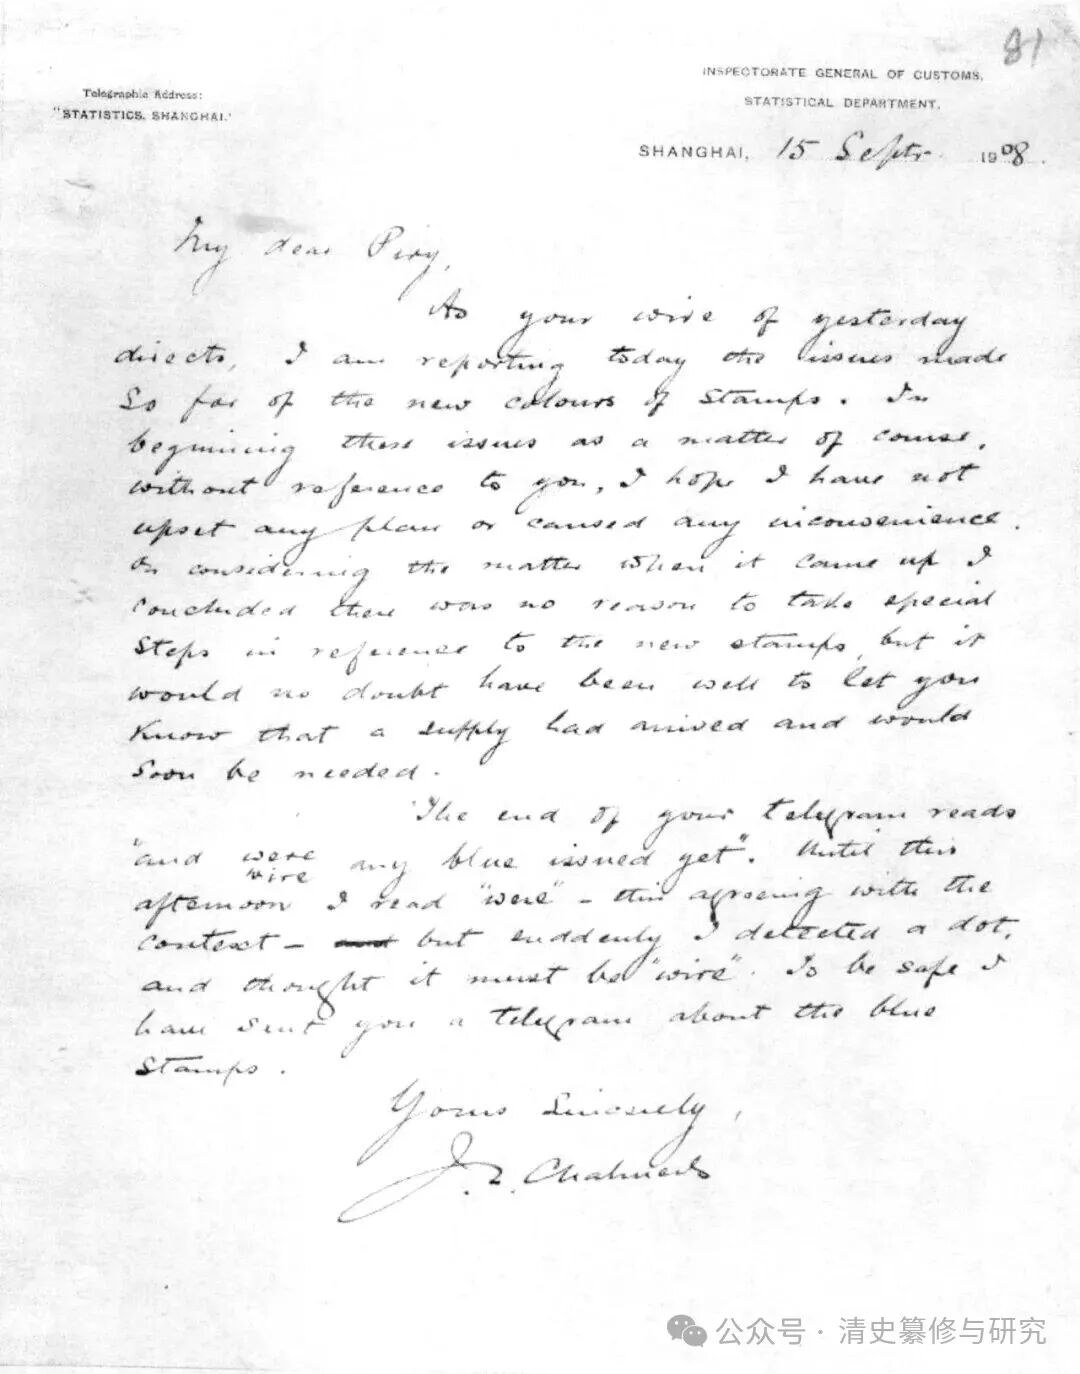 81
INSPECTORATE GENERAL OF CUSTOMS,
STATISTICAL DEPARTMENT.
Telegraphic Address:
"STATISTICS, SHANGHAI."
SHANGHAI, 15 Septr. 1908.
My dear Piry,
As your wire of yesterday
directs, I am reporting today the issues made
so far of the new colours of stamps. In
beginning these issues as a matter of course,
without reference to you, I hope I have not
upset any plan or caused any inconvenience.
On considering the matter when it came up I
concluded there was no reason to take special
steps in reference to the new stamps, but it
would no doubt have been well to let you
know that a supply had arrived and would
soon be needed.
The end of your telegram reads
"and were
wire any blue issued yet". Until this
afternoon I read "were" – this agreeing with the
context – but suddenly I detected a dot,
and thought it must be "wire". To be safe I
have sent you a telegram about the blue
stamps.
Yours sincerely,
J. L. Chalmers
公众号 · 清史纂修与研究